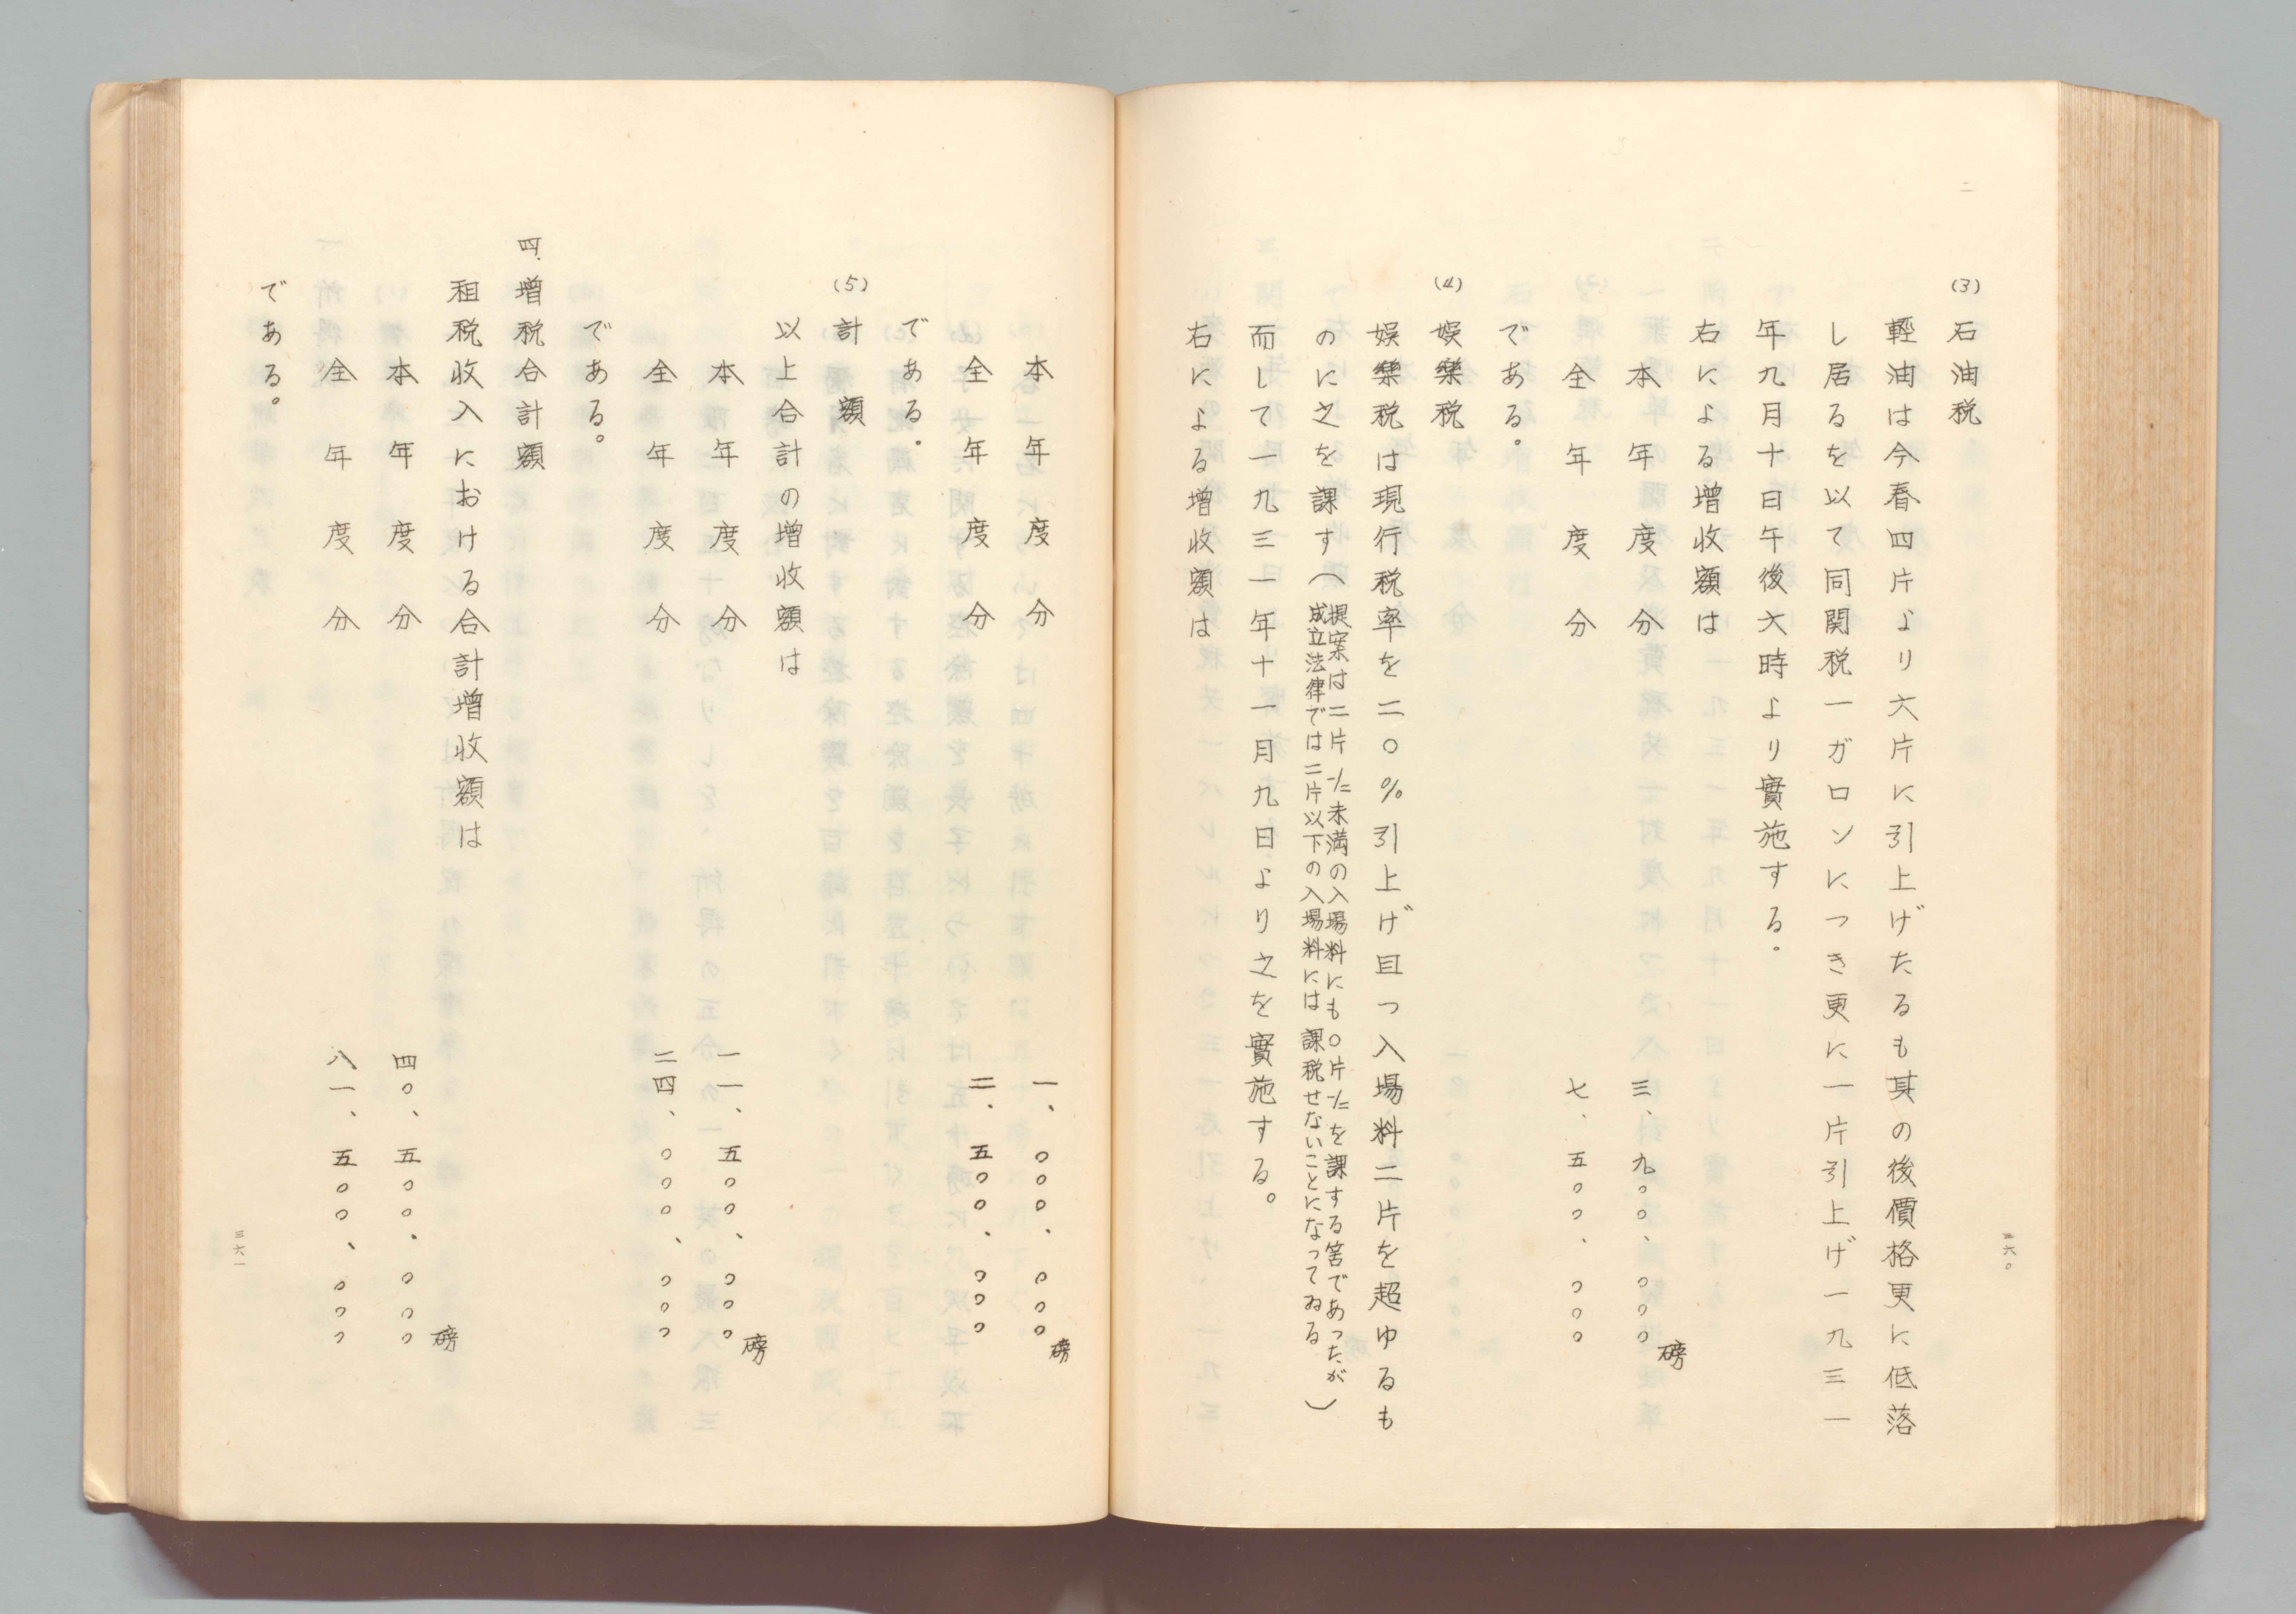 三六〇
(3) 石油税
輕油は今春四片より六片に引上げたるも其の後價格更に低落
し居るを以て同関税一ガロンにつき更に一片引上げ一九三一
年九月十日午後六時より實施する。
右による増收額は
本年度分 三、九〇〇、〇〇〇磅
全年度分 七、五〇〇、〇〇〇
である。
(4) 娯樂税
娯樂税は現行税率を二〇%引上げ且つ入場料二片を超ゆるも
のに之を課す(提案は二片½未満の入場料にも〇片½を課する筈であったが
成立法律では二片以下の入場料には課税せないことになってゐる)
而して一九三一年十一月九日より之を實施する。
右による増收額は
本年度分 一、〇〇〇、〇〇〇磅
全年度分 二、五〇〇、〇〇〇
である。
(5) 計額
以上合計の増收額は
本年度分 一一、五〇〇、〇〇〇磅
全年度分 二四、〇〇〇、〇〇〇
である。
四、増税合計額
租税收入における合計増收額は
本年度分 四〇、五〇〇、〇〇〇磅
全年度分 八一、五〇〇、〇〇〇
である。
三六一